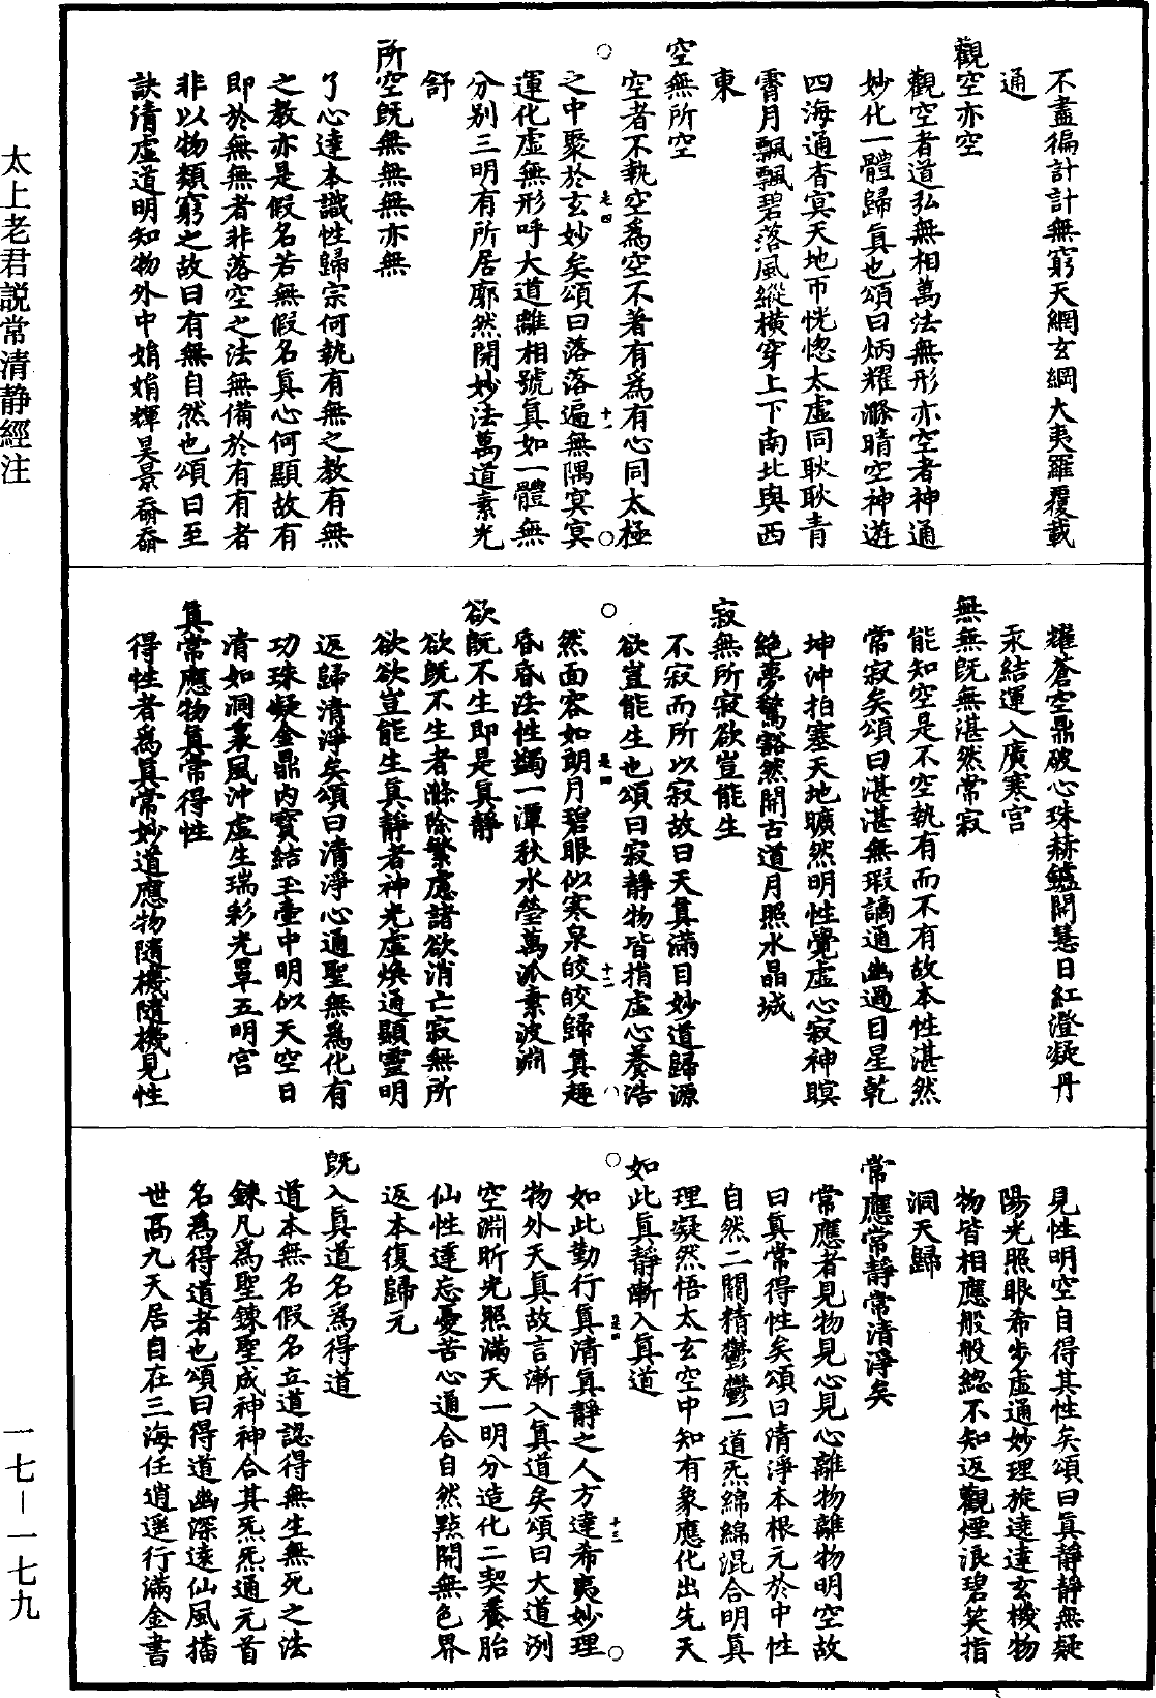 不盡徧計計無窮天網玄綱大夷羅覆載
通
觀空亦空
觀空者道弘無相萬法無形亦空者神通
妙化一體歸真也頌曰炳耀滌晴空神遊
四海通杳冥天地帀恍惚太虛同耿耿青
霄月飄飄碧落風縱橫穿上下南北與西
東
空無所空
空者不執空為空不著有為有心同太極
之中聚於玄妙矣頌曰落落遍無隅冥冥
運化虛無形呼大道離相號真如一體無
分別三明有所居廓然開妙法萬道素光
舒
所空既無無無亦無
了心達本識性歸宗何執有無之教有無
之教亦是假名若無假名真心何顯故有
即於無無者非落空之法無備於有有者
非以物類窮之故曰有無自然也頌曰至
訣清虛道明知物外中娟娟輝昊景奫奫
耀蒼空鼎破心珠赫鑪開慧日紅澄凝丹
汞結運入廣寒宮
無無既無湛然常寂
能知空是不空執有而不有故本性湛然
常寂矣頌曰湛湛無瑕謫通幽過目星乾
坤沖拍塞天地曠然明性覺虛心寂神瞑
絕夢驚豁然開古道月照水晶城
寂無所寂欲豈能生
不寂而所以寂故曰天真滿目妙道歸源
欲豈能生也頌曰寂靜物皆捐虛心養浩
然面容如朗月碧眼似寒泉皎皎歸真趣
昏昏法性蠲一潭秋水瑩萬派素波淵
欲既不生即是真靜
欲既不生者滌除繁慮諸欲消亡寂無所
欲欲豈能生真靜者神光虛煥通顯靈明
返歸清淨矣頌曰清淨心通聖無為化有
功珠凝金鼎內寶結玉壺中明似天空日
清如洞裏風沖虛生瑞彩光罩五明宮
真常應物真常得性
得性者為真常妙道應物隨機隨機見性
見性明空自得其性矣頌曰真靜靜無疑
陽光照眼希步虛通妙理旋遶達玄機物
物皆相應般般總不知返觀煙浪碧笑指
洞天歸
常應常靜常清淨矣
常應者見物見心見心離物離物明空故
曰真常得性矣頌曰清淨本根元於中性
自然二關精鬱鬱一道炁綿綿混合明真
理凝然悟太玄空中知有象應化出先天
如此真靜漸入真道
如此勤行真清真靜之人方達希夷妙理
物外天真故言漸入真道矣頌曰大道洌
空淵昕光照滿天一明分造化二契養胎
仙性達忘憂苦心通合自然點開無色界
返本復歸元
既入真道名為得道
道本無名假名立道認得無生無死之法
鍊凡為聖鍊聖成神神合其炁炁通元首
名為得道者也頌曰得道幽深遠仙風播
世高九天居自在三海任逍遥行滿金書
太上老君説常清静經注
一七－一七九